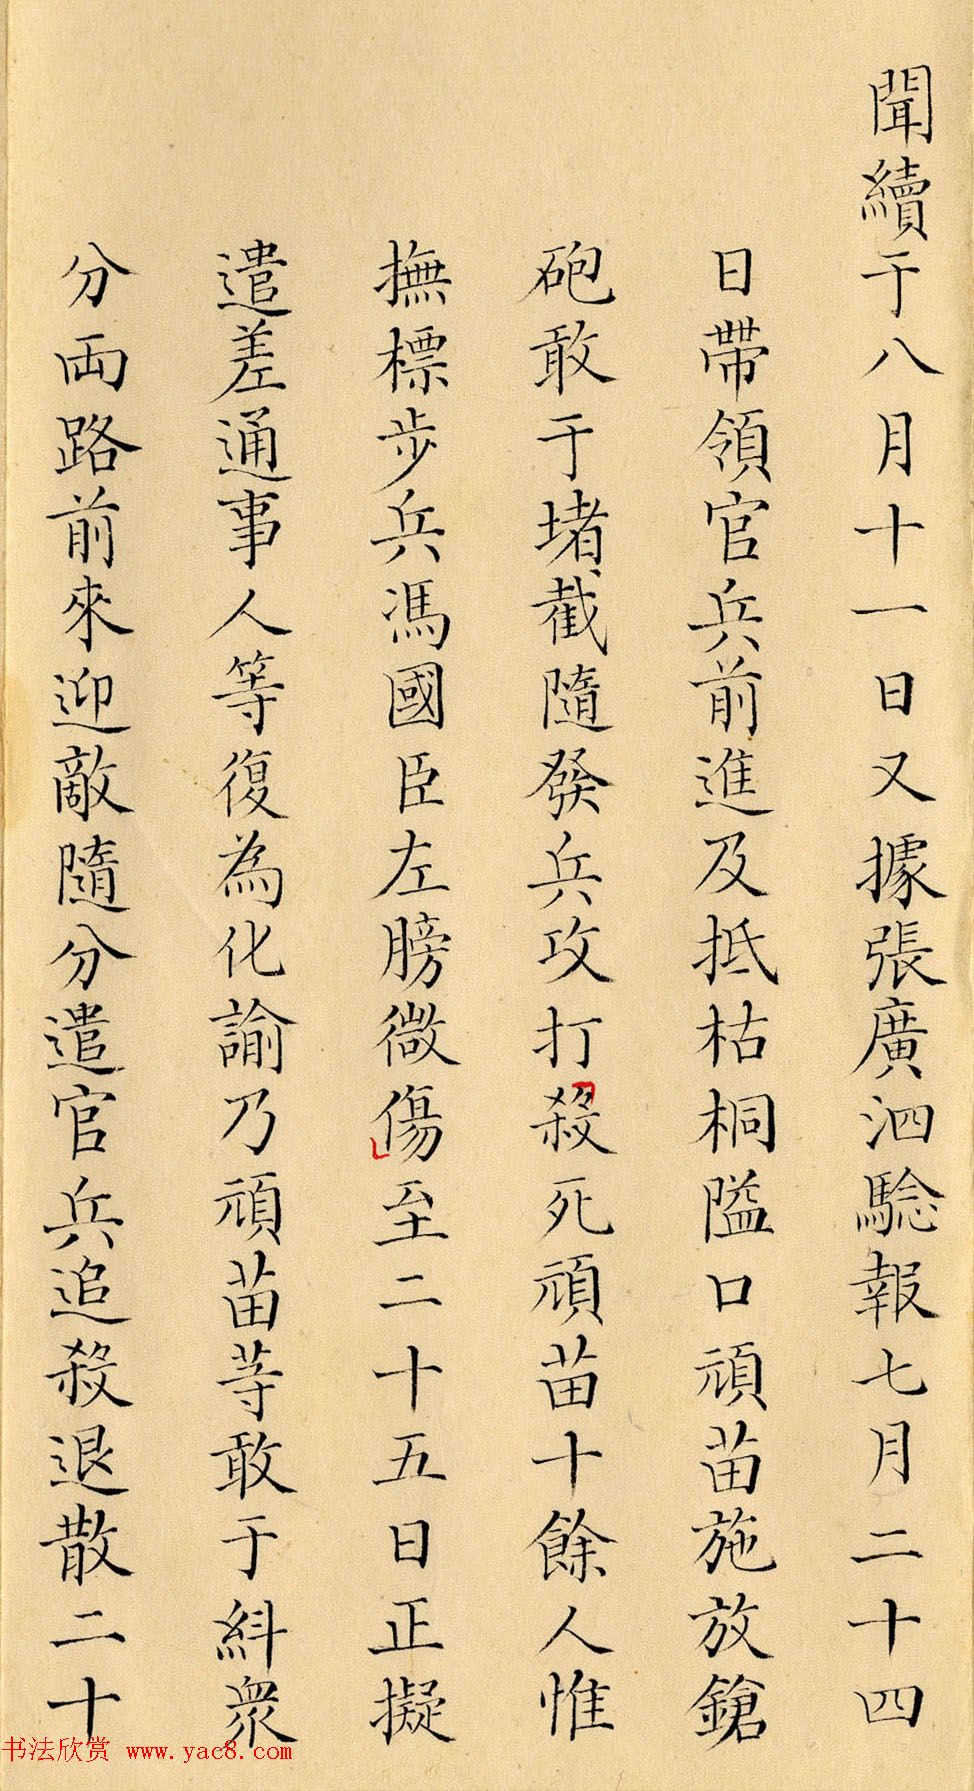 聞續于八月十一日又據張廣泗騐報七月二十四
日帶領官兵前進及抵枯桐隘口頑苗施放鎗
砲敢于堵截隨發兵攻打殺死頑苗十餘人惟
撫標步兵馮國臣左膀微傷至二十五日正擬
遣差通事人等復為化諭乃頑苗等敢于糾衆
分両路前來迎敵隨分遣官兵追殺退散二十
书法欣赏 www.yac8.com